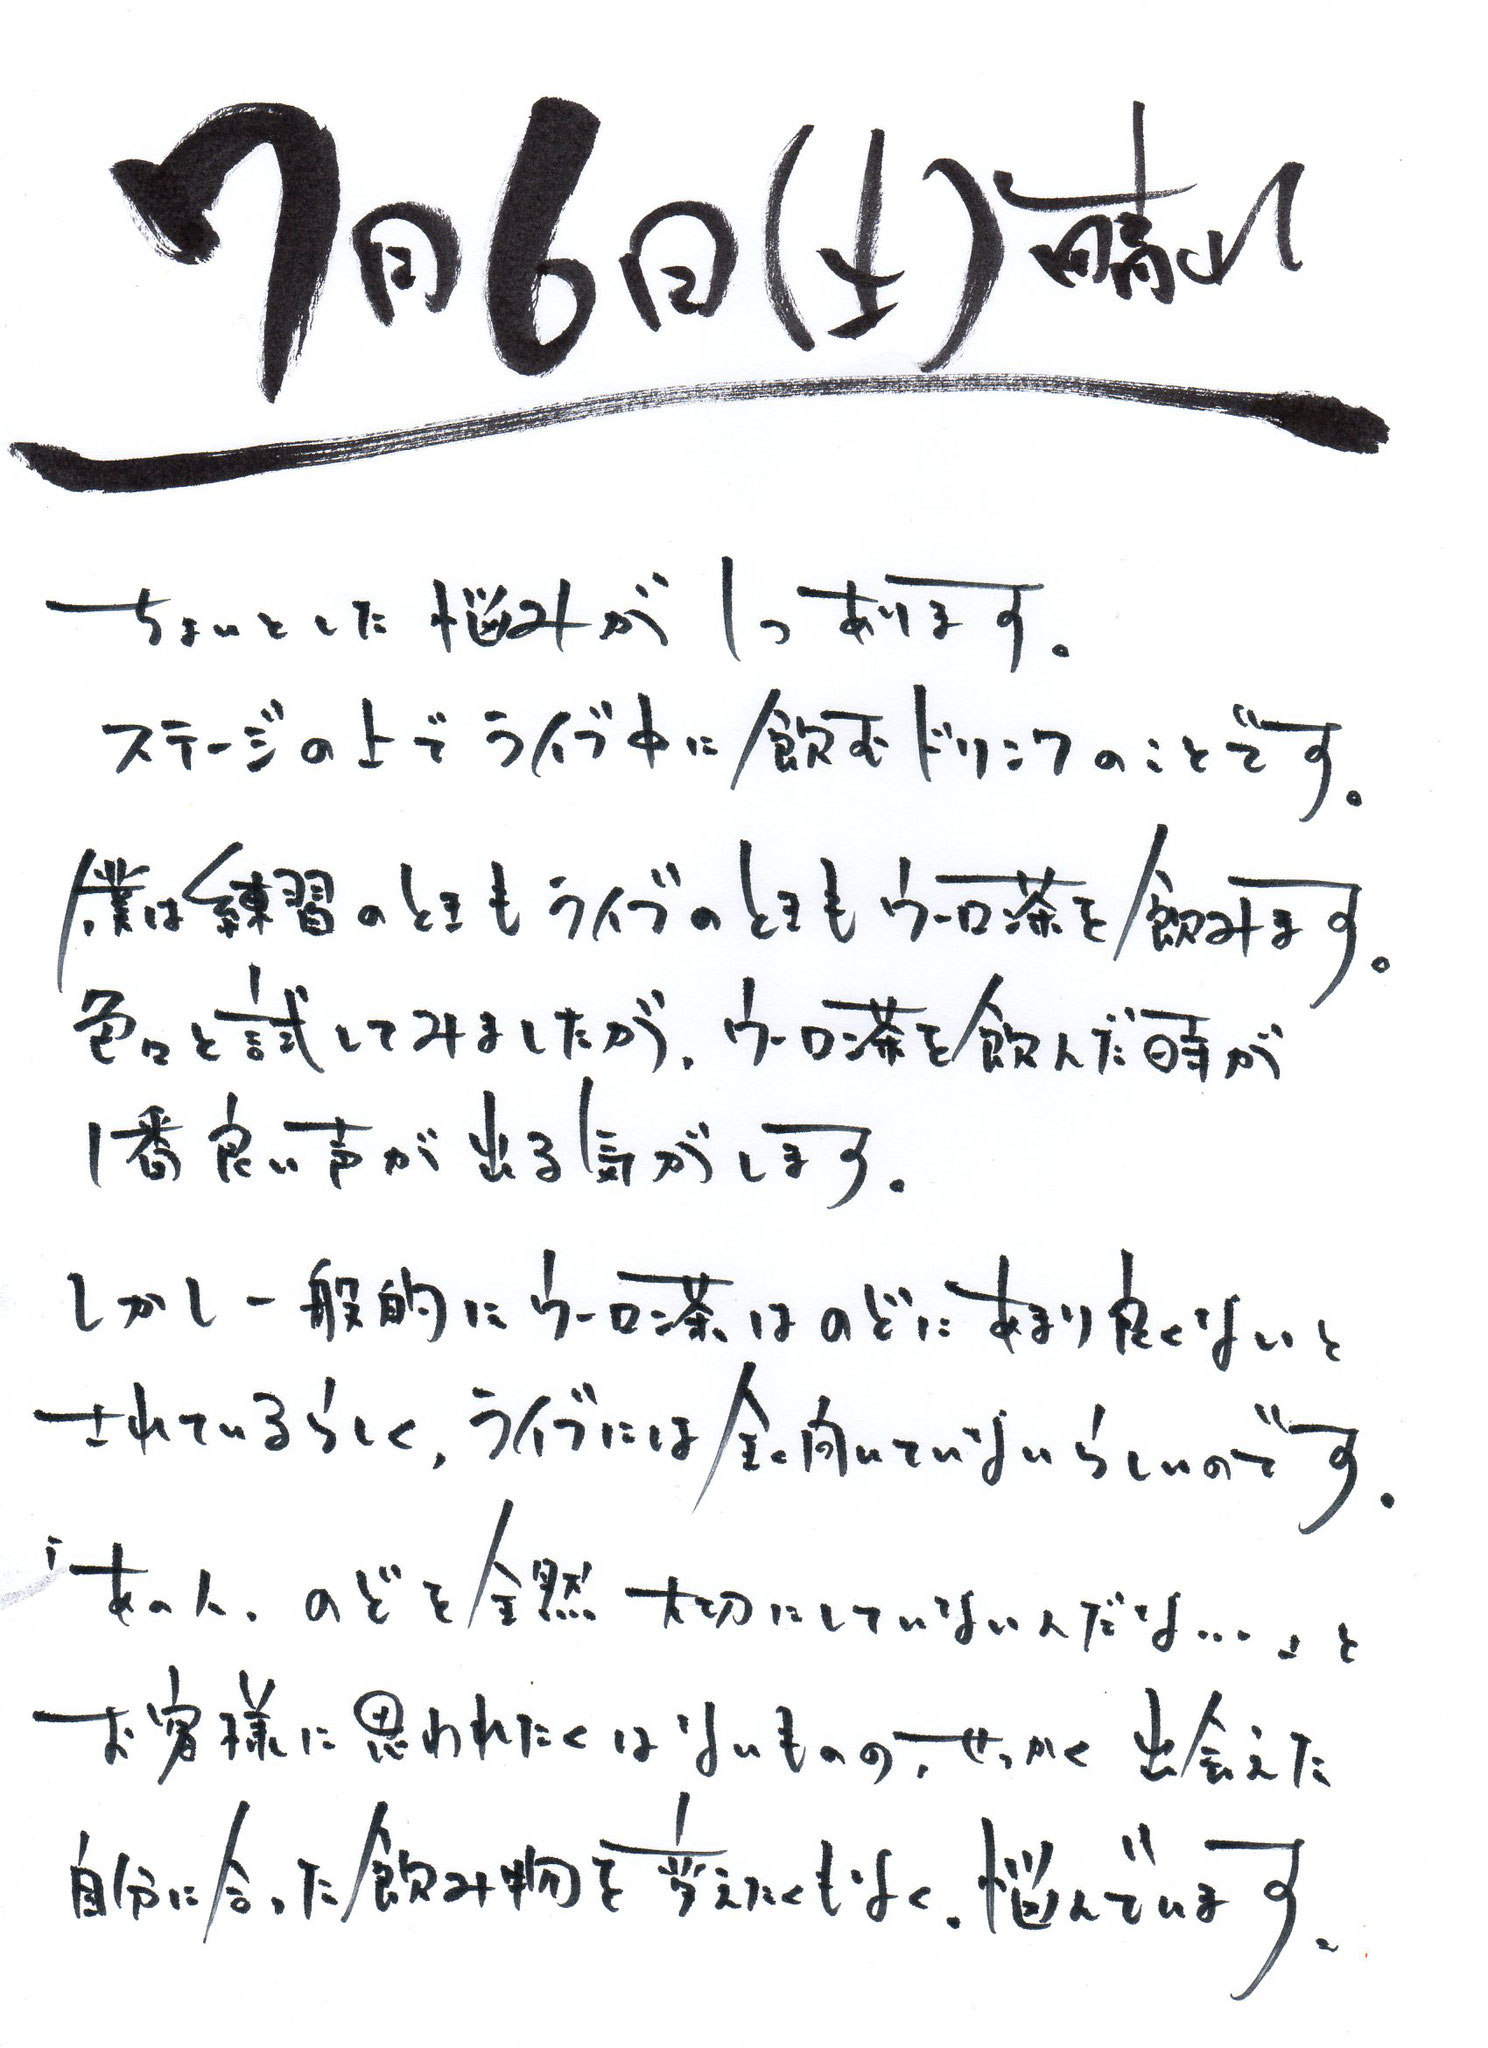 7月6日(土)晴れ
ちょいとした悩みが1つあります。
ステージの上でライブ中に飲むドリンクのことです。
僕は練習のときもライブのときもウーロン茶を飲みます。
色々と試してみましたが、ウーロン茶を飲んだ時が
1番良い声が出る気がします。
しかし一般的にウーロン茶はのどにあまり良くないと
されているらしく、ライブには全く向いていないらしいのです。
「あの人、のどを全然大切にしていないんだな…」と
お客様に思われたくはないものの、せっかく出会えた
自分に合った飲み物を変えたくもなく、悩んでいます。